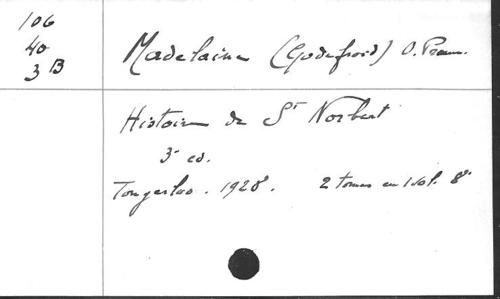 106
40
3 B
Madelaine (Godefroid) O. Praem.
Histoire de St Norbert
3e ed.
Tongerloo. 1928. 2 tomes en 1 vol. 8°